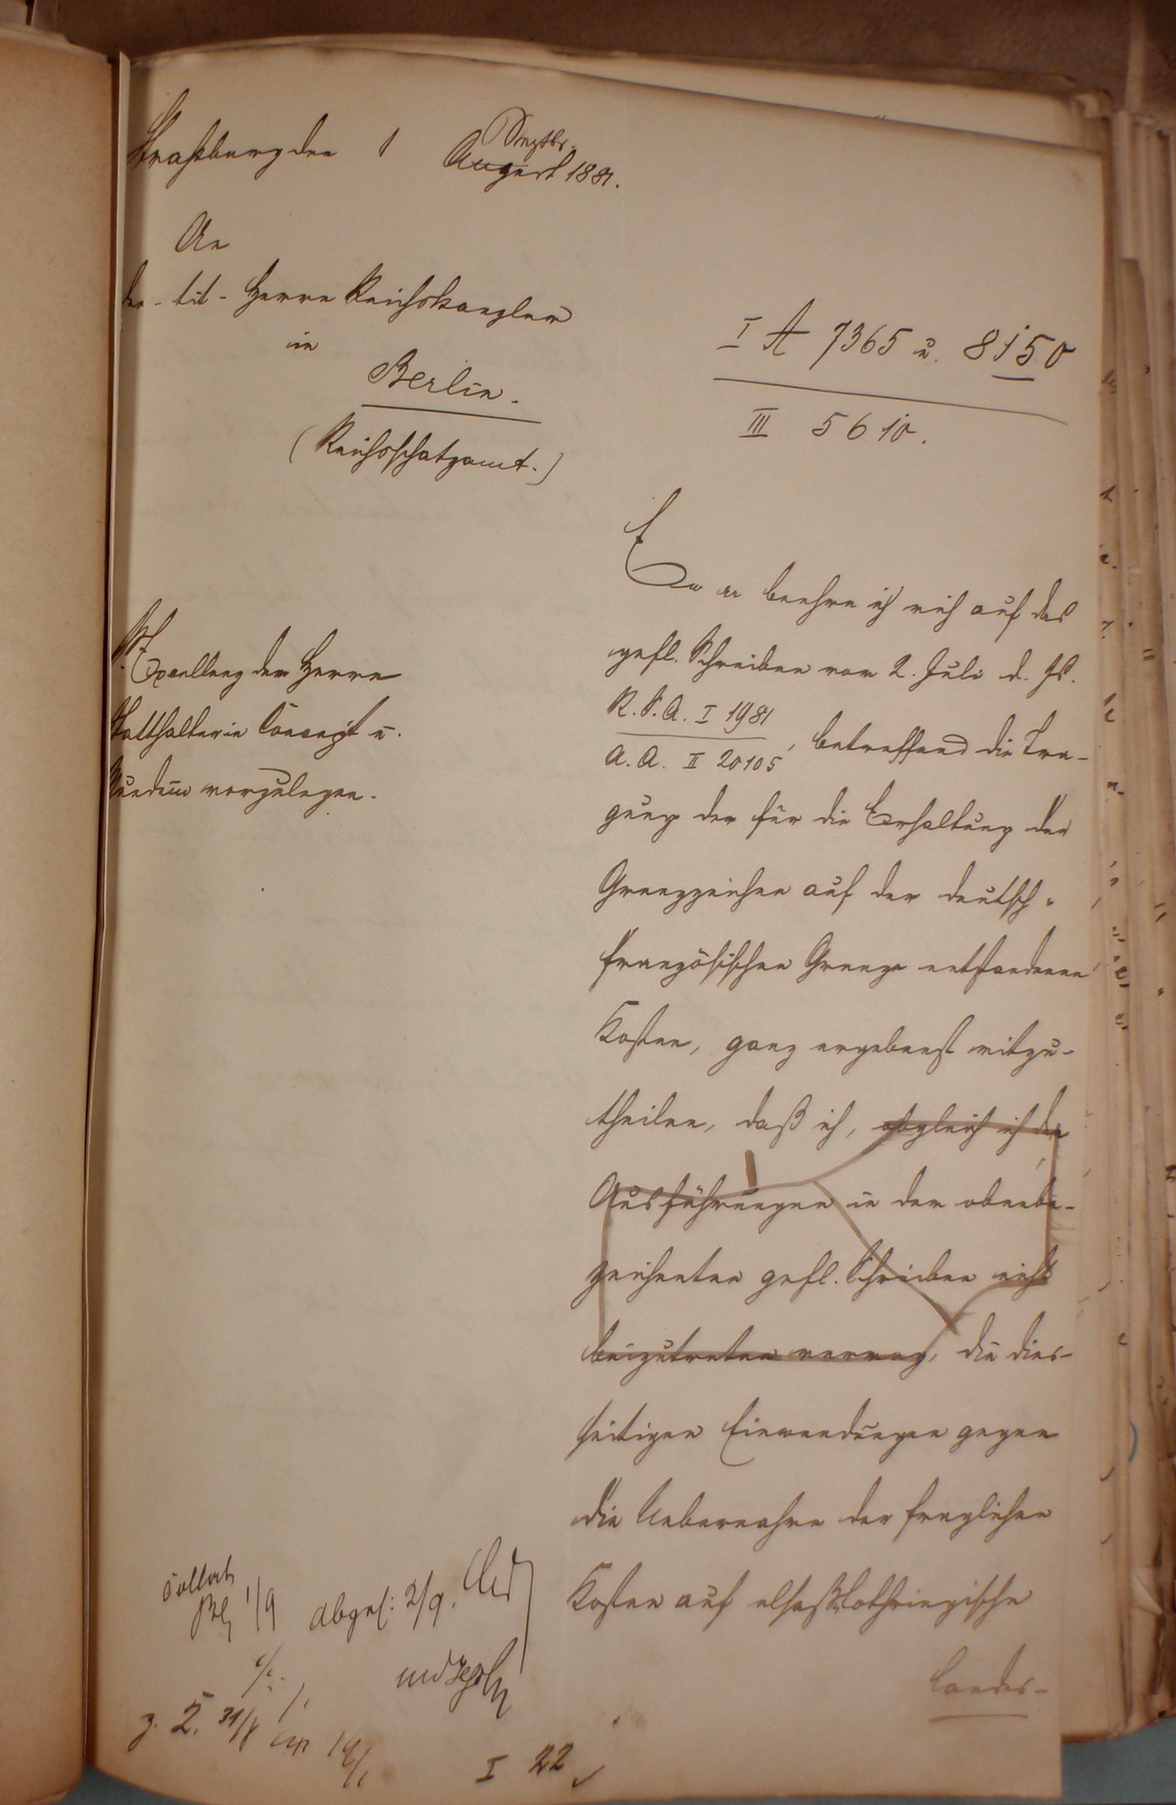 Straßburg den 1 Septbr.
August 1881.
An
den - tit - Herrn Reichskanzler
in
Berlin.
(Reichsschatzamt.)
I A 7365 u. 8150
III 5610.
Sr. Excellenz dem Herrn
Statthalter in Concept u.
Mundum vorzulegen.
Ew pp beehre ich mich auf das
gefl. Schreiben vom 2. Juli d. Js.
R. S. A. I 1981
A. A. II 20105, betreffend die Tra-
gung der für die Erhaltung der
Grenzzeichen auf der deutsch-
französischen Grenze entstandenen
Kosten, ganz ergebenst mitzu-
theilen, daß ich, obgleich ich den
Ausführungen in dem obenbe-
zeichneten gefl. Schreiben nicht
beizutreten vermag, die dies-
seitigen Einwendungen gegen
die Uebernahme der fraglichen
Kosten auf elsaß-lothringische
Landes-
1/9 abges: 2/9.
z. Z. 31/8
I 22